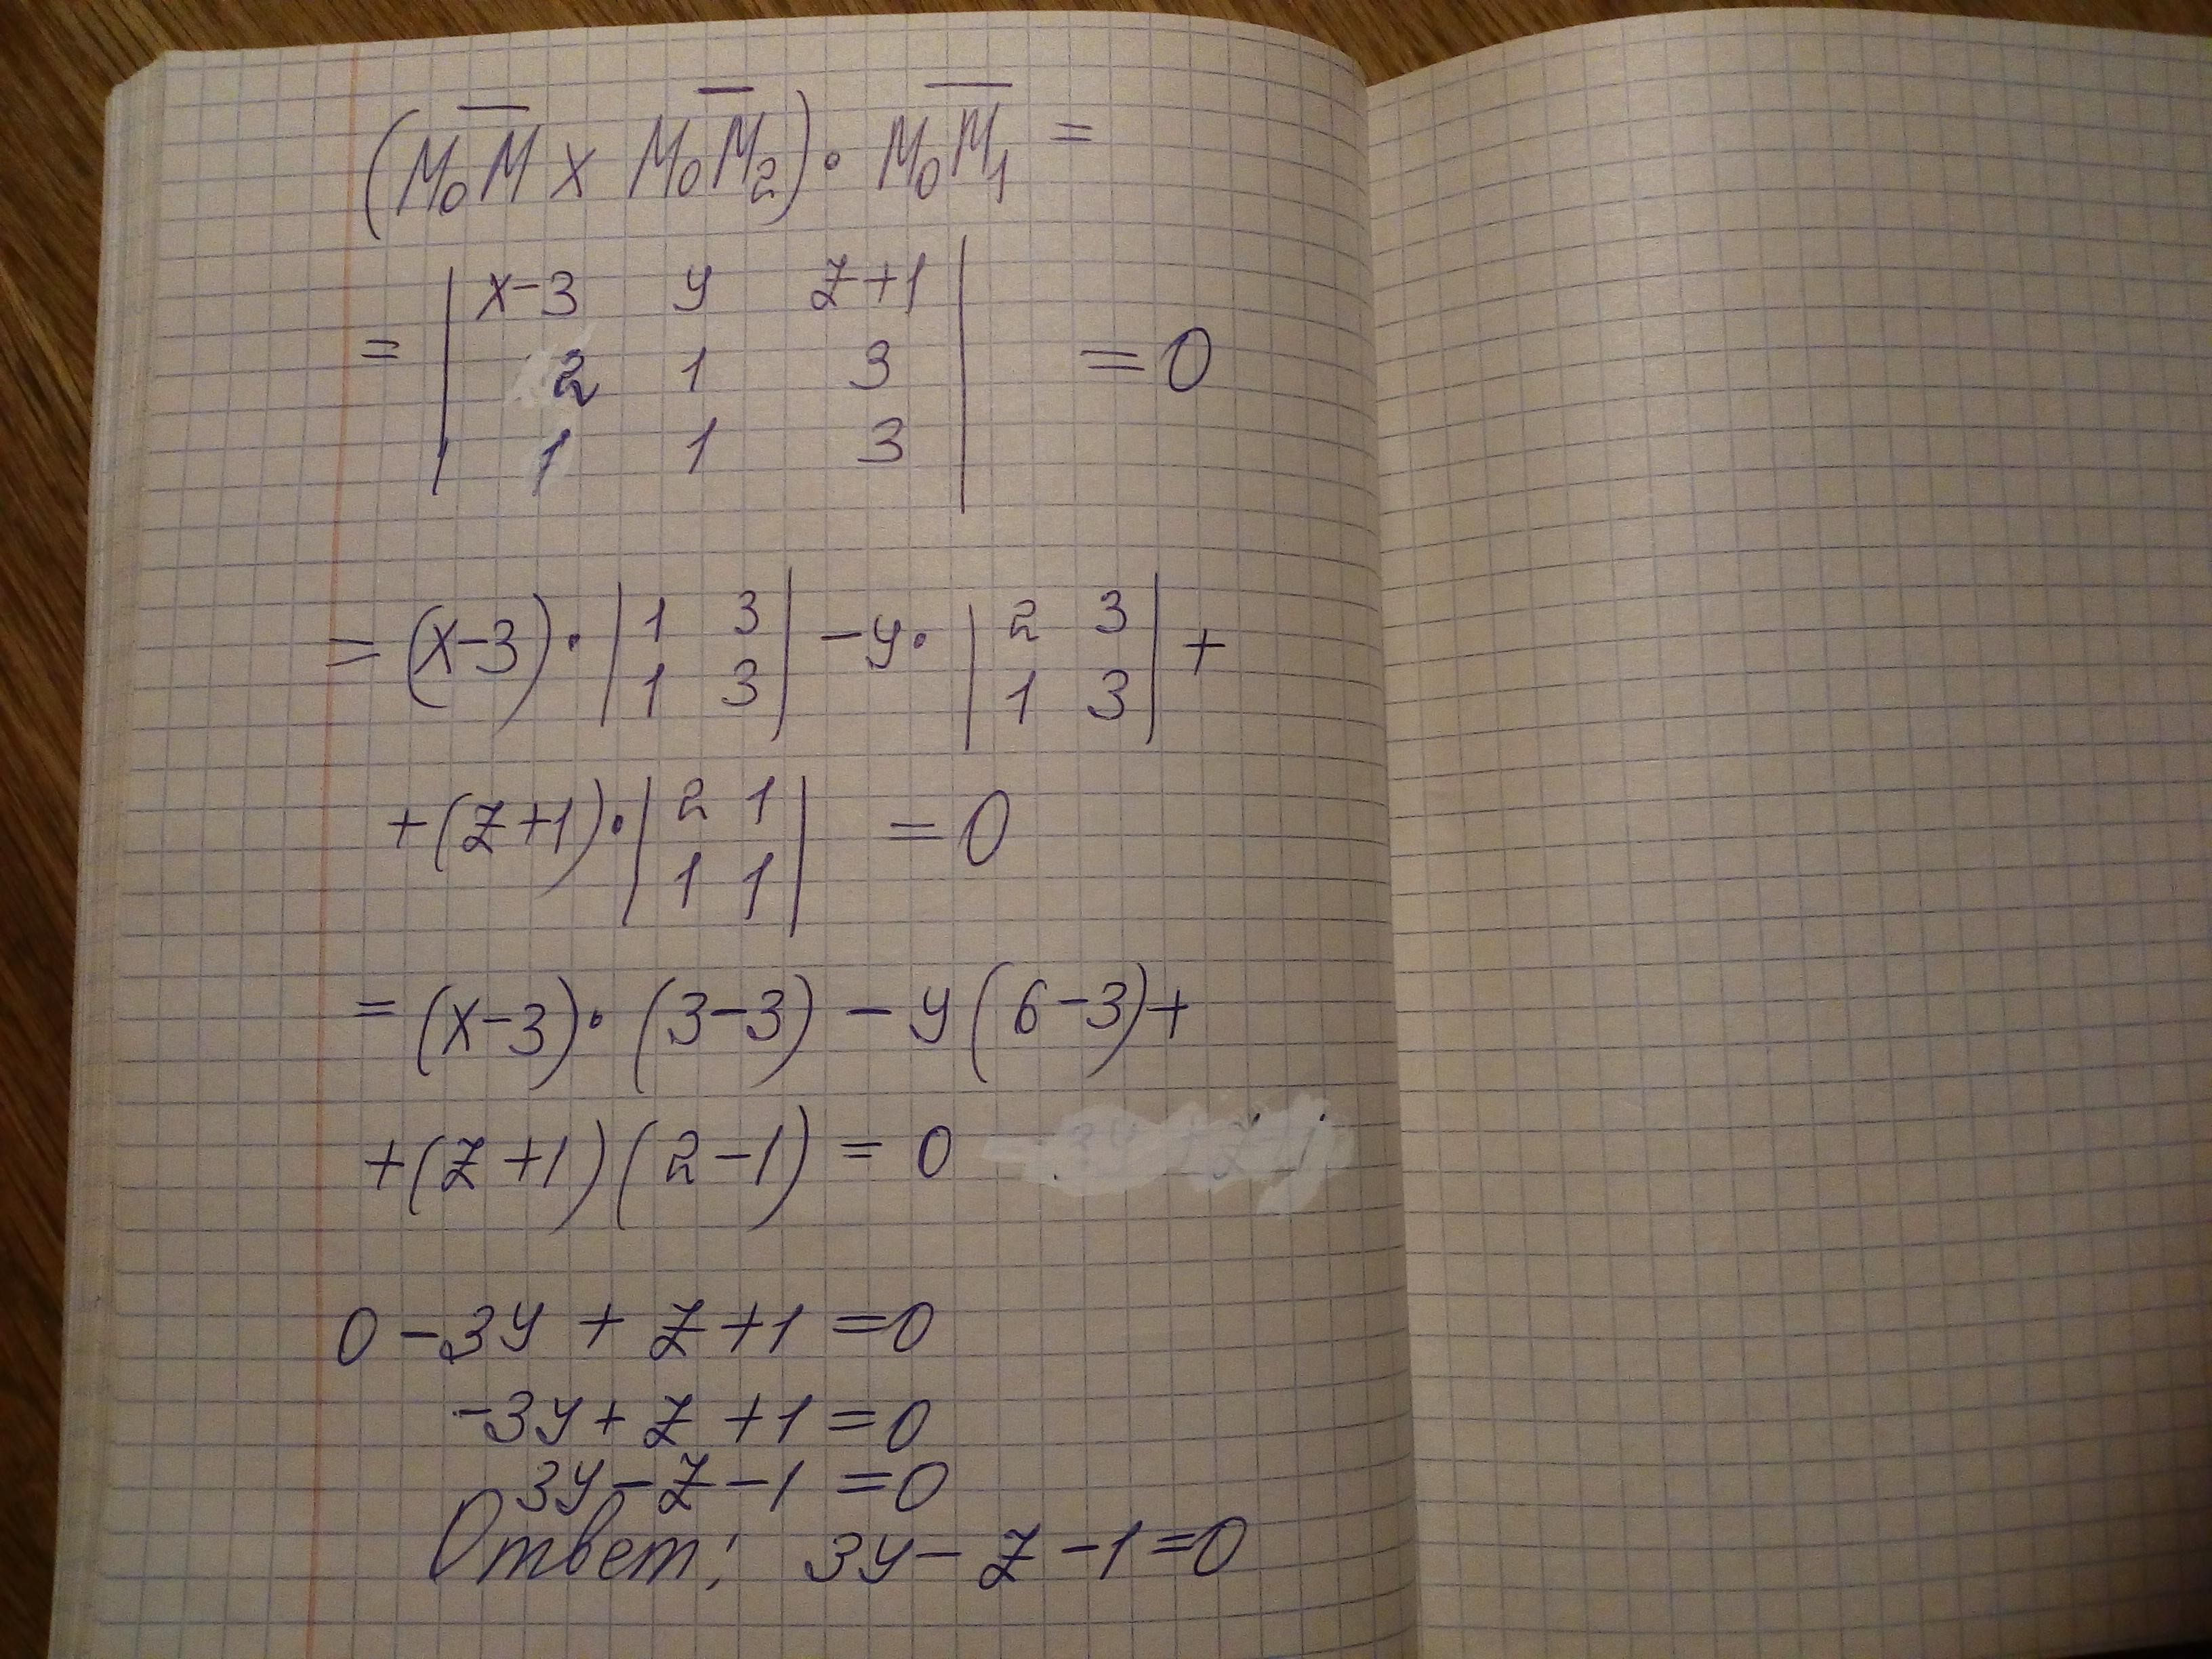 (M₀M̅ x M₀M̅₂) · M₀M̅₁ =
= | x-3 y z+1 |
| 2 1 3 | = 0
| 1 1 3 |
= (x-3) · | 1 3 | - y · | 2 3 | +
| 1 3 | | 1 3 |
+ (z+1) · | 2 1 | = 0
| 1 1 |
= (x-3) · (3-3) - y (6-3) +
+ (z+1) (2-1) = 0
0 - 3y + z + 1 = 0
-3y + z + 1 = 0
3y - z - 1 = 0
Ответ: 3y - z - 1 = 0